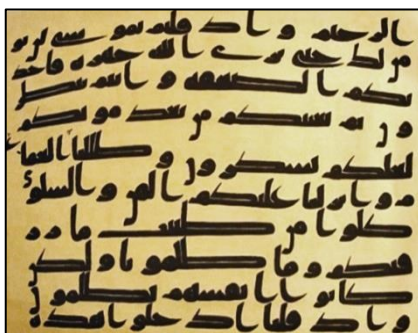 الرحيم واذ قلتم يموسى لن نو
من لك حتى نرى الله جهرة فاخذ
تكم الصعقة وانتم تنظر
ون ثم بعثنكم من بعد موتكم
لعلكم تشكرون وظللنا الغما
م وانزلنا عليكم المن والسلوى
كلوا من طيبت ما رز
قنكم وما ظلمونا ولكن
كانوا انفسهم يظلمون
واذ قلنا ادخلوا هذه